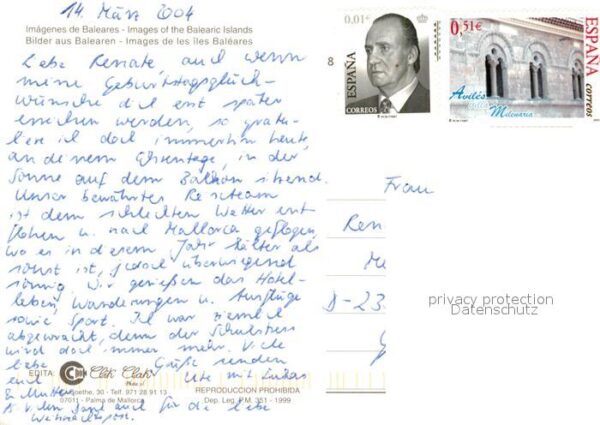 14. März 2004
Imágenes de Baleares - Images of the Balearic Islands
Bilder aus Balearen - Images de les îles Baléares
Liebe Renate auch wenn
meine Geburtstagsglück-
wünsche dich erst später
erreichen werden, so gratu-
liere ich doch immerhin heute,
an deinem Ehrentage, in der
Sonne auf dem Balkon sitzend.
Unser bewährtes Reiseteam
ist dem schlechten Wetter ent
flohen u. nach Mallorca geflogen,
wo es in diesem Jahr kälter als
sonst ist, jedoch überwiegend
sonnig. Wir genießen das Hotel-
leben, Wanderungen u. Ausflüge
sowie Sport. Ich war ziemlich
abgewrackt, denn der Schulstress
wird doch immer mehr. Viele
liebe Grüße senden
euch Ute mit Lukas
& Mutter
EDITA: Clik Clak
Photo
30 - Telf. 971 28 91 13
07011 - Palma de Mallorca
REPRODUCCION PROHIBIDA
Dep. Leg. P.M. 351 - 1999
P.S. Vielen Dank auch für die liebe
Weihnachtspost.
8
0,01€
ESPAÑA
CORREOS
0,51€
ESPAÑA
CORREOS
Avilés
Milenaria
Frau
Ren
D-23
privacy protection
Datenschutz